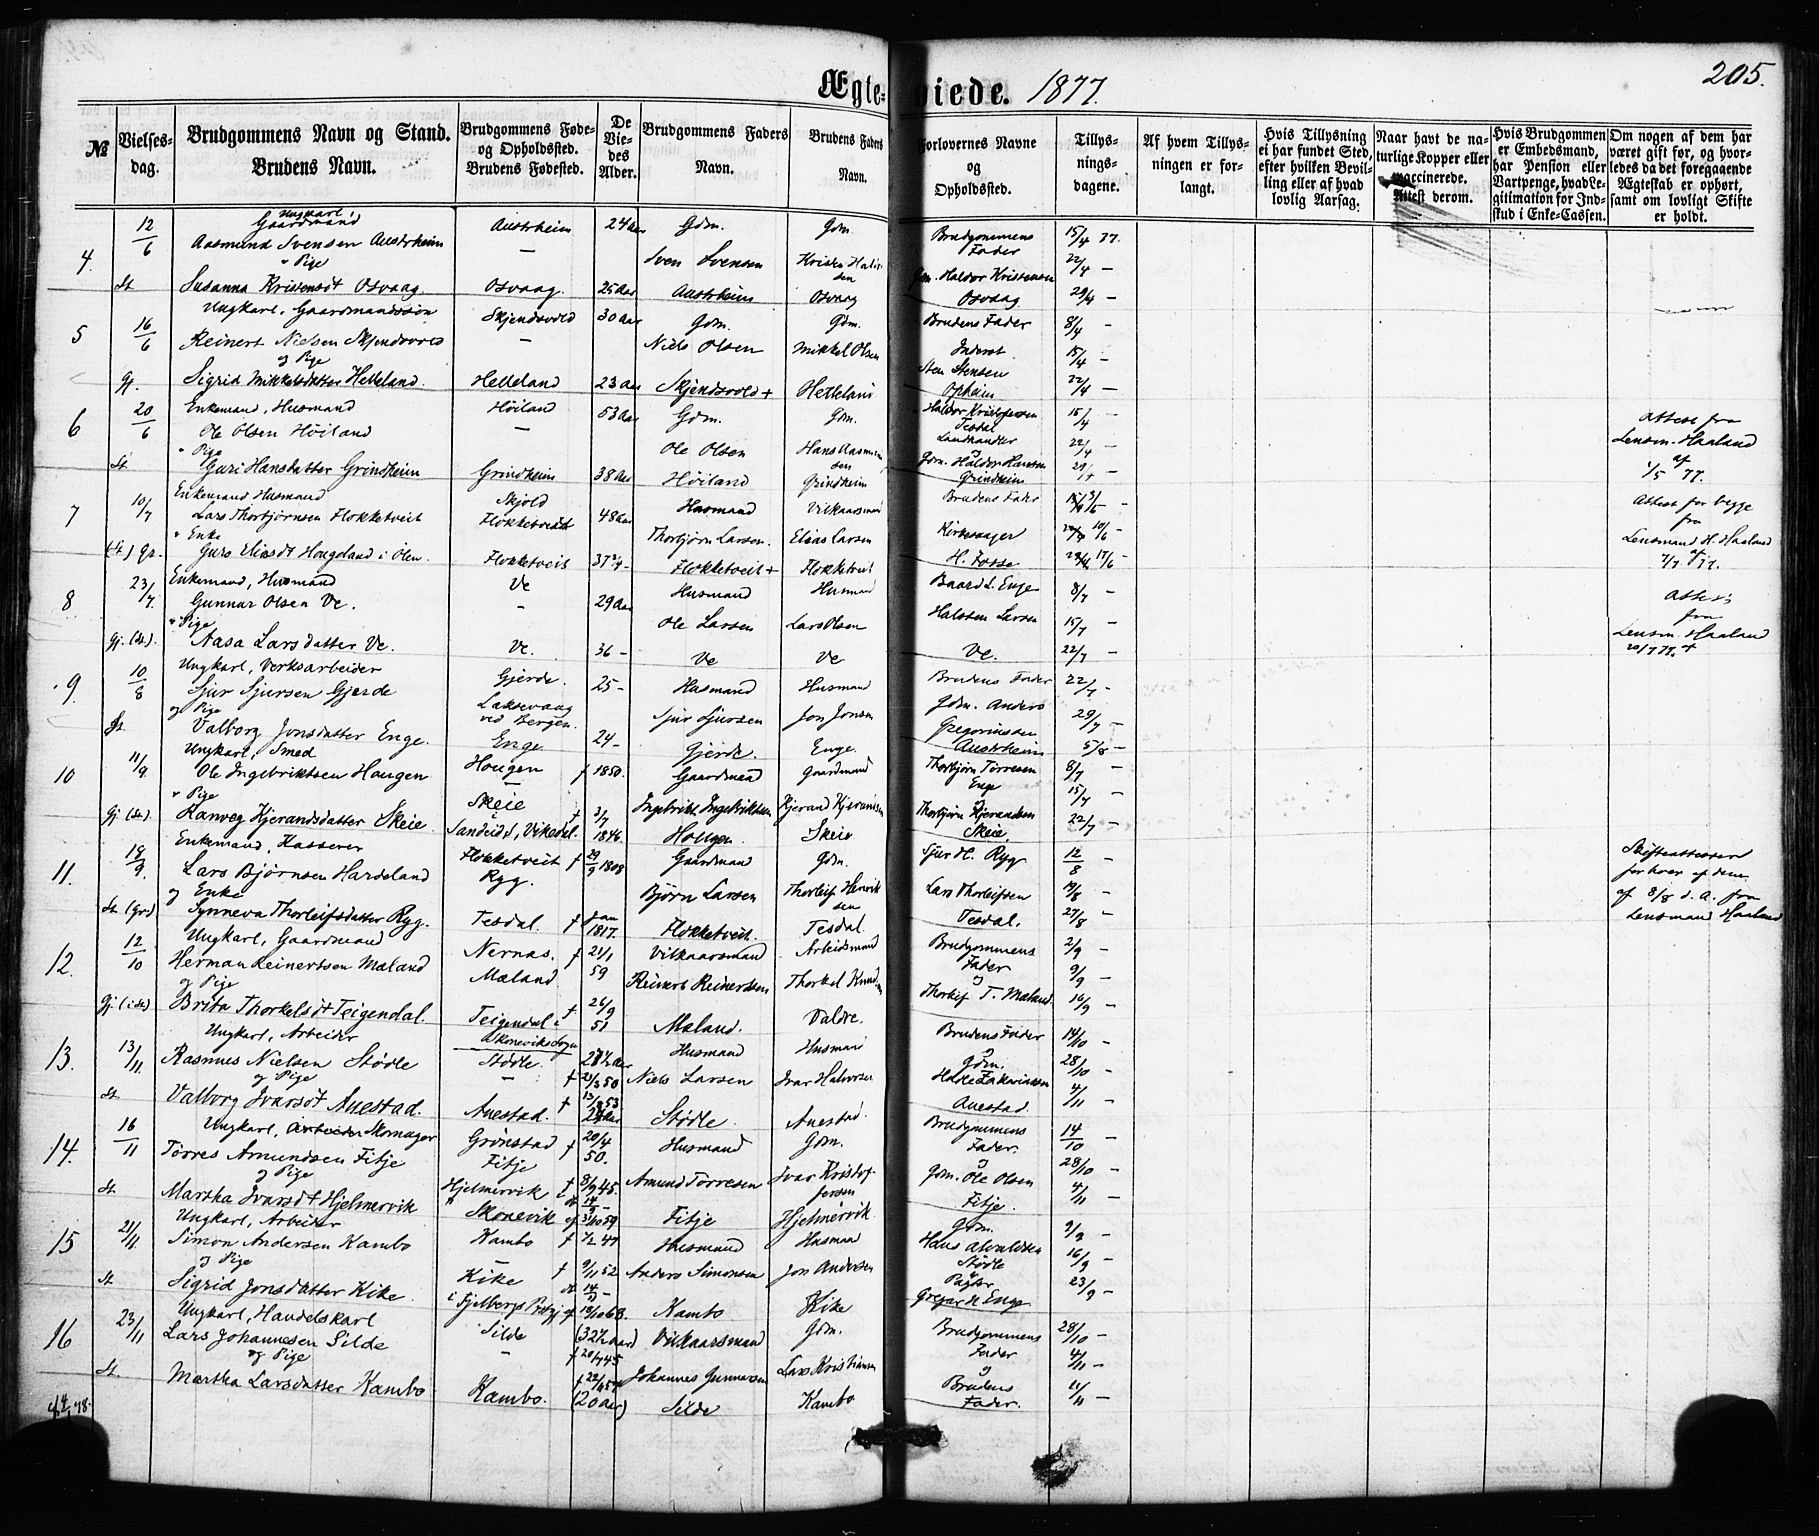 205.
Ægteviede. 1877.
№
Vielsesdag.
Brudgommens Navn og Stand. Brudens Navn.
Brudgommens Føde- og Opholdssted. Brudens Fødested.
De Viedes Alder.
Brudgommens Faders Navn.
Brudens Faders Navn.
Forlovernes Navne og Opholdssted.
Tillysningsdagene.
Af hvem Tillysningen er forlangt.
Hvis Tillysning ei har fundet Sted, efter hvilken Bevilling eller af hvad lovlig Aarsag.
Naar havt de naturlige Kopper eller vaccinerede. Attest derom.
Hvis Brudgommen er Embedsmand, har Pension eller Vartpenge, hvad Legitimation for Indskud i Enke-Cassen.
Om nogen af dem har været gift før, og hvorledes da det foregaaende Ægteskab er ophørt, samt om lovligt Skifte er holdt.
4. 12/6 Ungkarl, Gaardmand Austrheim 24 Aar Gdm. Gdm. Brudgommens 15/4 77.
Aasmund Svensen Austrheim — Fader 22/4 —
" Pige Sven Svensen
St Susanna Kristensdt Osvaag Osvaag. 25 Aar Austrheim Osvaag Gdm. Haldor Kristensen Osvaag 29/4 —
5 16/6 Ungkarl, Gaardmandssøn Skjendsvold 30 Aar Gdm. Gdm. Brudens Fader 8/4 —
Reinert Nielsen Skjendsvold — Niels Olsen Mikkel Olsen 15/4 —
og Pige Sten Stensen
Gj. Sigrid Mikkelsdatter Helleland. Helleland 23 Aar Skjendsvold + Helleland Opheim 22/4 —
6 20/6 Enkemand, Husmand Høiland 53 Aar Gdm. Gdm. Haldor Kristofersen 15/4 — Attest fra
Ole Olsen Høiland — Ole Olsen Tesdal Landhandler 22/4 — Lensm. Haaland
" Pige Hans Aasmundsen
St. Guri Hansdatter Grindheim Grindheim 38 Aar Høiland Grindheim Gdm. Haldor Hansen Grindheim af 1/5 77.
7 10/7 Enkemand Husmand Skjold 48 Aar Husmand Vilkaarsmand Brudens Fader Attest for begge
Lars Thorbjørnsen Flokketveit Flokketveit Thorbjørn Larsen. Elias Larsen Kirkesanger 10/6 — fra
" Enke Lensmand H. Haaland
(St.) Gr. Guro Eliasdt Hougeland i Ølen. Flokketveit 37 3/4 — Flokketveit + Flokketveit H. Fosse 17/6 — 7/7 77.
8 23/7. Enkemand, Husmand Ve 29 Aar Husmand Husmand Baard L. Enge 8/7 — Attest
Gunnar Olsen Ve. — Ole Larsen Lars Olsen Halsten Larsen 15/7 — fra
" Pige Lensm. Haaland
Gj. (St.) Aasa Larsdatter Ve. Ve. 36 — Ve Ve Ve. 22/7 — 20/7 77.
9. 10/8 Ungkarl, Verksarbeider Gjerde. 25 — Husmand Husmand Brudens Fader 22/7 —
Sjur Sjursen Gjerde Laksevaag ved Bergen. Sjur Sjursen Jon Jonsen Gdm. Anders 29/7 —
og Pige Gregoriussen
St. Valborg Jonsdatter Enge. Enge 24 — Gjerde. Enge. Austrheim 5/8 —
10 11/9. Ungkarl, Smed Hougen f 1850. Gaardmand Gaardmand Thorbjørn Tørresen 8/7 —
Ole Ingebriktsen Hougen — Enge 15/7 —
" Pige Skeie Ingebrikt Ingebriktsen Kjerand Kjerandsen Thorbjørn Kjerandsen
Gj (St.) Ranveg Kjerandsdatter Skeie. Sandeid i Vikedal. f 3/7 1846 Hougen Skeie Skeie 22/7 —
11. 18/9. Enkemand, Kasserer Flokketveit f 29/9 1808 Gaardmand Gdm. Sjur H. Ryg 12/8 — Skifteattester
Lars Bjørnsen Hardeland Ryg. Bjørn Larsen Thorleif Henriksen Lars Thorleifsen 19/8 — for hver af dem
og Enke af 8/8 d. A. fra
St (Gr.) Synneva Thorleifsdatter Ryg. Tesdal. f Jan 1817. Flokketveit. Tesdal. Tesdal. 27/8 — Lensmand Haaland
12. 12/10 Ungkarl, Gaardmand Nernas. f 21/1 59 Vilkaarsmand Arbeidsmand Brudgommens 2/9 —
Herman Reinertsen Mæland Mæland Reinert Reinertsen Thorkel Knudsen Fader 9/9 —
og Pige og
Gj (i St.) Brita Thorkelsdt Teigendal. Teigendal i Skonevik Sogn f 26/9 51 Mæland. Valdre. Thorleif T. Mæland. 16/9 —
13. 13/11 Ungkarl, Arbeider Stødle. 27 1/2 Aar Husmand Husmand Brudens Fader 14/10 —
Rasmus Nielsen Stødle — Niels Larsen Ivar Halvorsen og Gdm. 28/10 —
og Pige
St Valborg Ivarsdt Auestad. Auestad. Stødle. Auestad. Auestad. 4/11 —
14. 16/11 Ungkarl, Arbeider Skomager Grønstad f 20/4 50. Husmand Gdm. Brudgommens 14/10 —
Tørres Amundsen Fitje Fitje Amund Tørresen Ivar Kristofersen Fader. 28/10 —
og Pige og Gdm. Ole Olsen
St. Martha Ivarsdt Hjelmervik Hjelmervik i Skonevik f 8/9 45. Fitje Hjelmervik. Fitje. 4/11 —
15 21/11. Ungkarl, Arbeider Kambo f 7/2 47 Husmand Husmand Gdm. 9/9 —
Simon Andersen Kambo — Anders Simonsen Jon Andersen Stødle 16/9 —
og Pige
St Sigrid Jonsdatter Kike. Kike i Fjelbergs Prgj. f 9/11 52 Kambo Kike Enge 23/9 —
16 23/11 Ungkarl, Handelskarl Silde (32 1/2 Aar) Vilkaarsmand Gdm. Brudgommens 28/10 —
Lars Johannesen Silde — Johannes Gunnarsen Lars Kristiansen Fader 4/11 —
og Pige og
St. Martha Larsdatter Kambo Kambo. (20 Aar) Silde Kambo Brudens Fader. 11/11 —